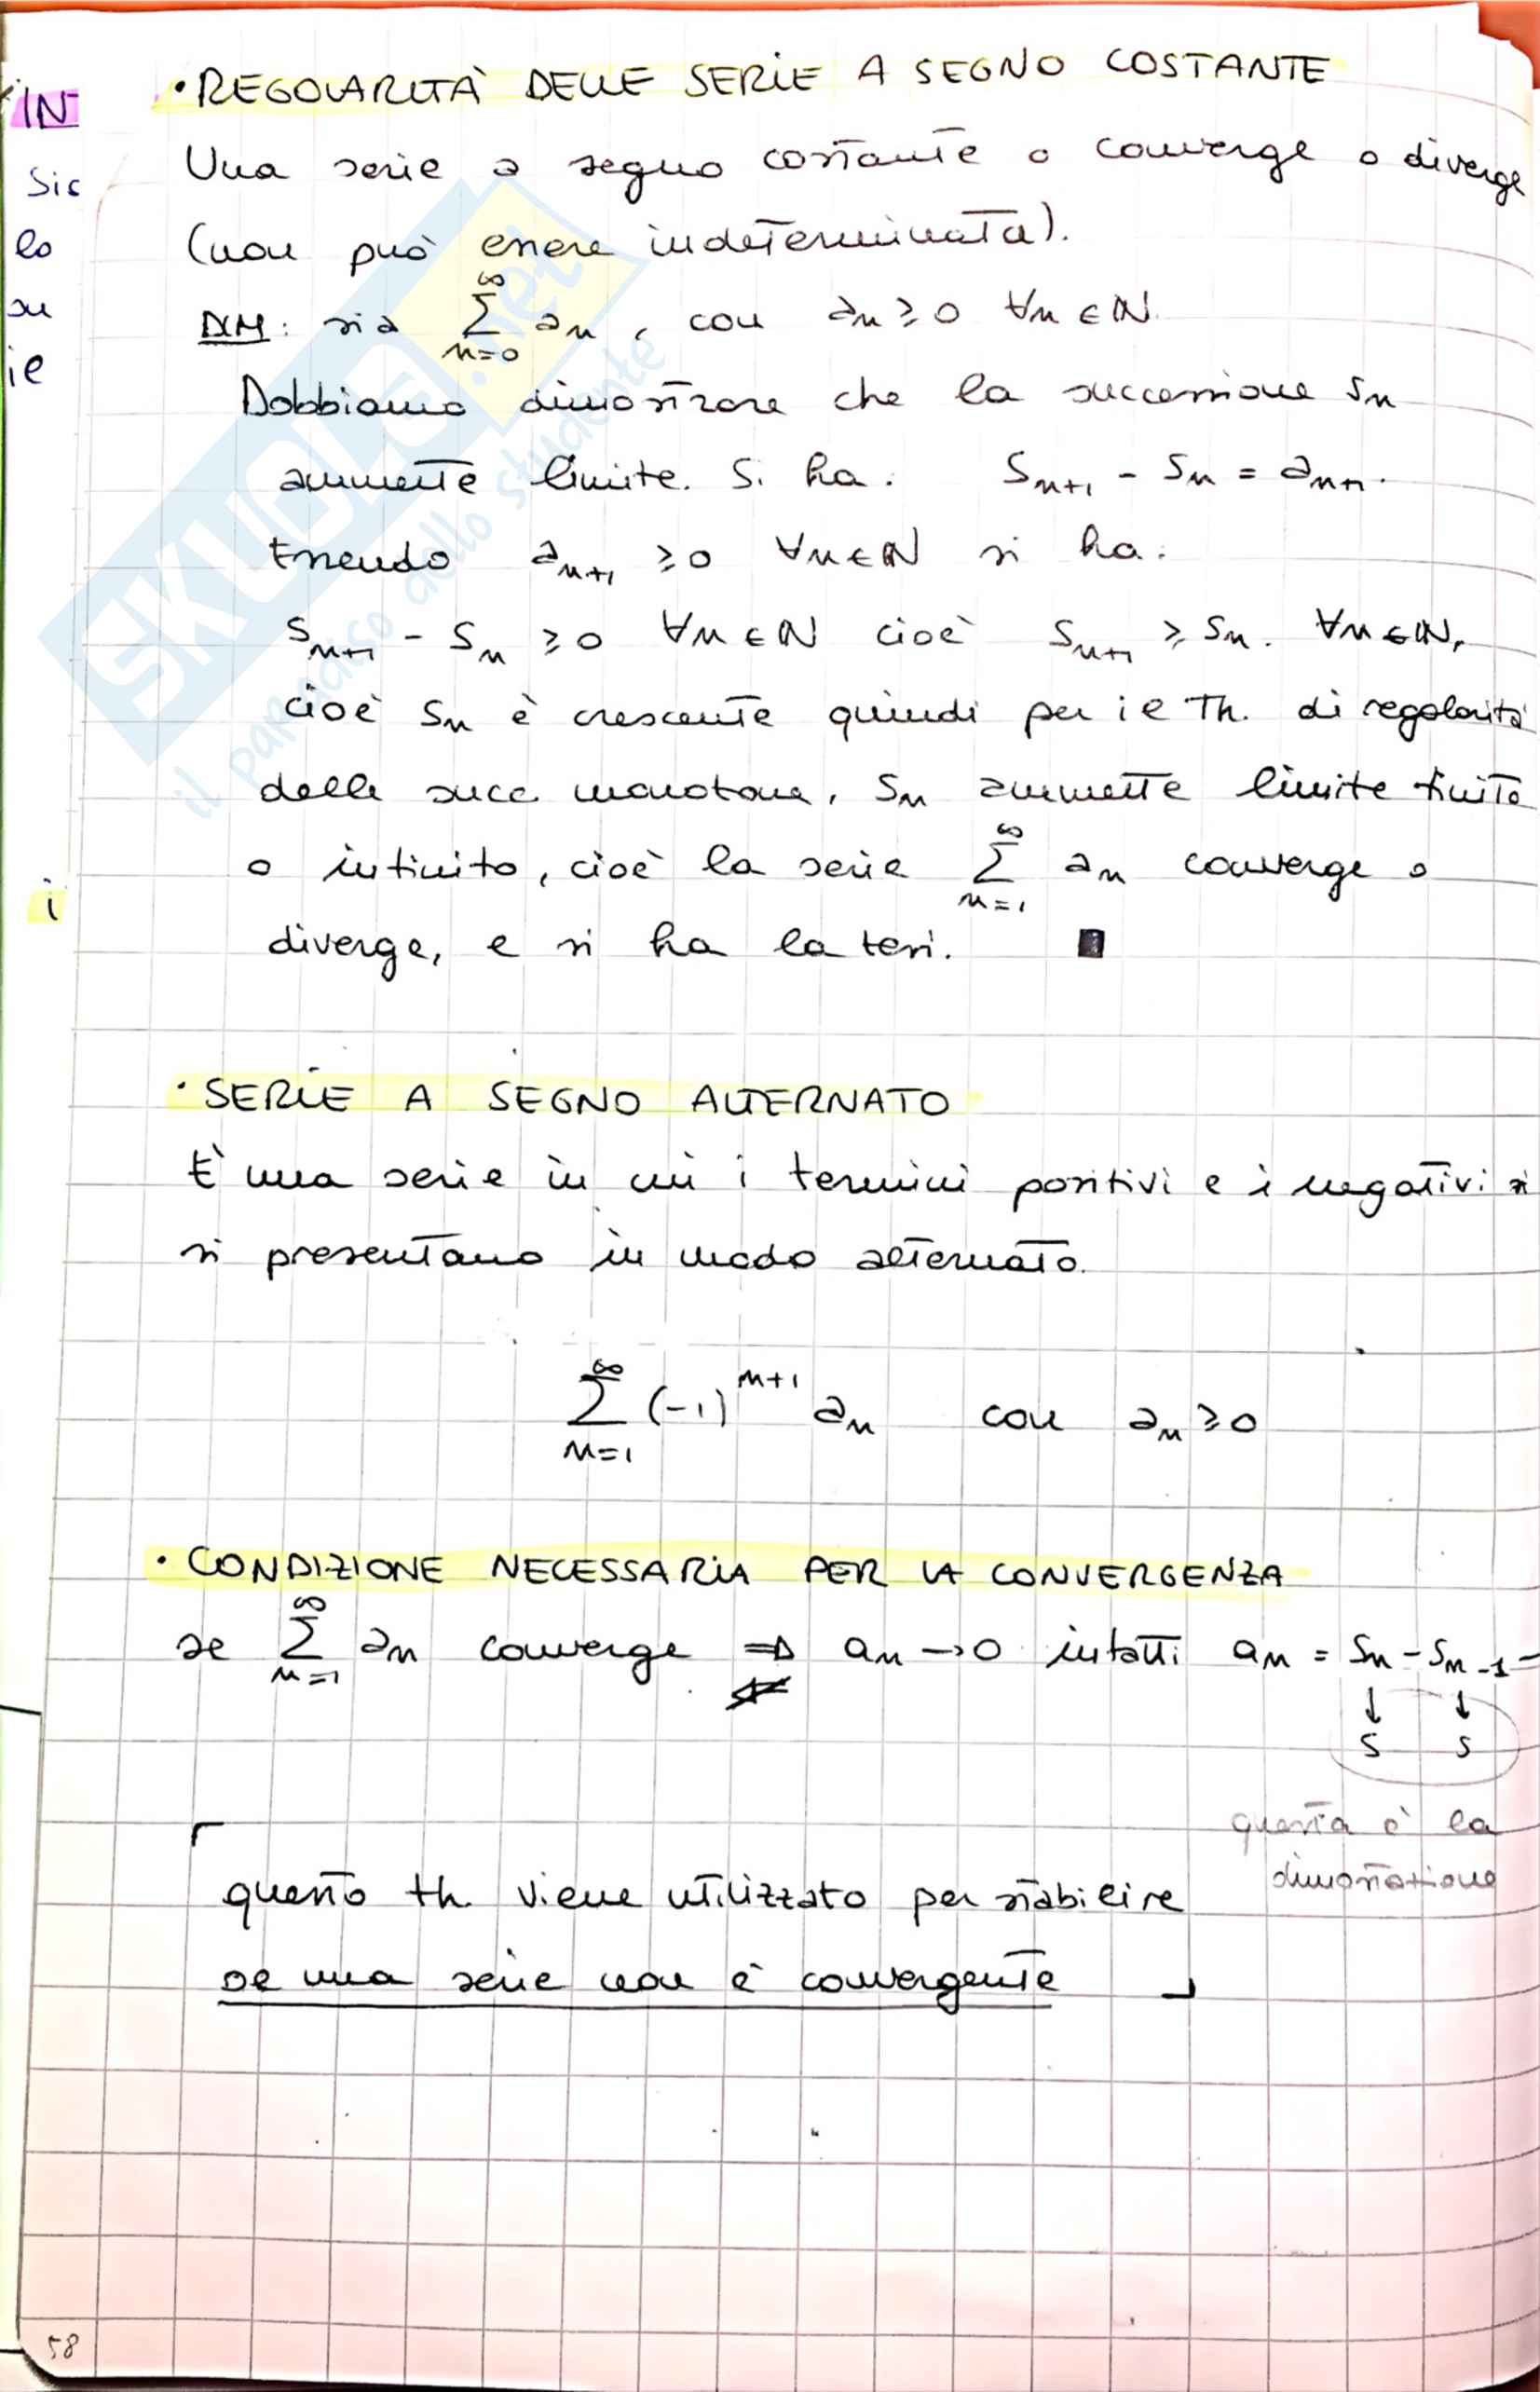 • REGOLARITÀ DELLE SERIE A SEGNO COSTANTE
Una serie a segno costante o converge o diverge
(non può essere indeterminata).
DIM: sia ∑_{n=0}^{∞} a_n, con a_n ≥ 0 ∀n ∈ ℕ.
Dobbiamo dimostrare che la successione S_n
ammette limite. Si ha: S_{n+1} - S_n = a_{n+1}.
Essendo a_{n+1} ≥ 0 ∀n ∈ ℕ si ha:
S_{n+1} - S_n ≥ 0 ∀n ∈ ℕ cioè S_{n+1} ≥ S_n. ∀n ∈ ℕ,
cioè S_n è crescente quindi per il Th. di regolarità
delle succ monotone, S_n ammette limite finito
o infinito, cioè la serie ∑_{n=1}^{∞} a_n converge o
diverge, e si ha la tesi. ∎
• SERIE A SEGNO ALTERNATO
È una serie in cui i termini positivi e i negativi si
si presentano in modo alternato.
∑_{n=1}^{∞} (-1)^{n+1} a_n con a_n ≥ 0
• CONDIZIONE NECESSARIA PER LA CONVERGENZA
se ∑_{n=1}^{∞} a_n converge ⇒ a_n → 0 infatti a_n = S_n - S_{n-1} =
⇍ ↓ ↓
S S
questa è la
dimostrazione
questo th. viene utilizzato per stabilire
se una serie non è convergente
58
IN
Sic
lo
su
ie
i
SKUOLA.net
il paradiso dello studente